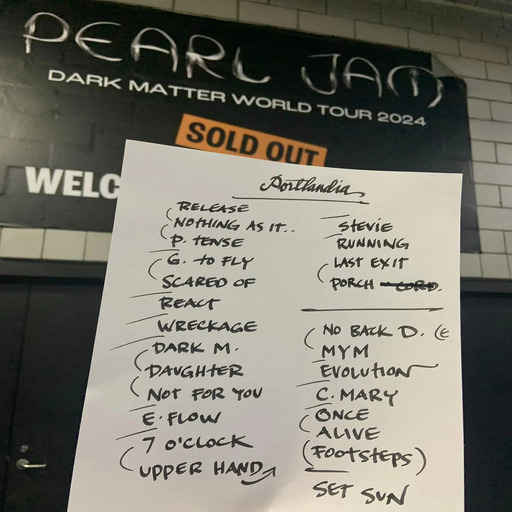 PEARL JAM
DARK MATTER WORLD TOUR 2024
SOLD OUT
WELC
Portlandia
RELEASE
NOTHING AS IT..
P. TENSE
G. TO FLY
SCARED OF
REACT
WRECKAGE
DARK M.
DAUGHTER
NOT FOR YOU
E. FLOW
7 O'CLOCK
UPPER HAND
STEVIE
RUNNING
LAST EXIT
PORCH
NO BACK D. (E
MYM
EVOLUTION
C. MARY
ONCE
ALIVE
(FOOTSTEPS)
SET SUN